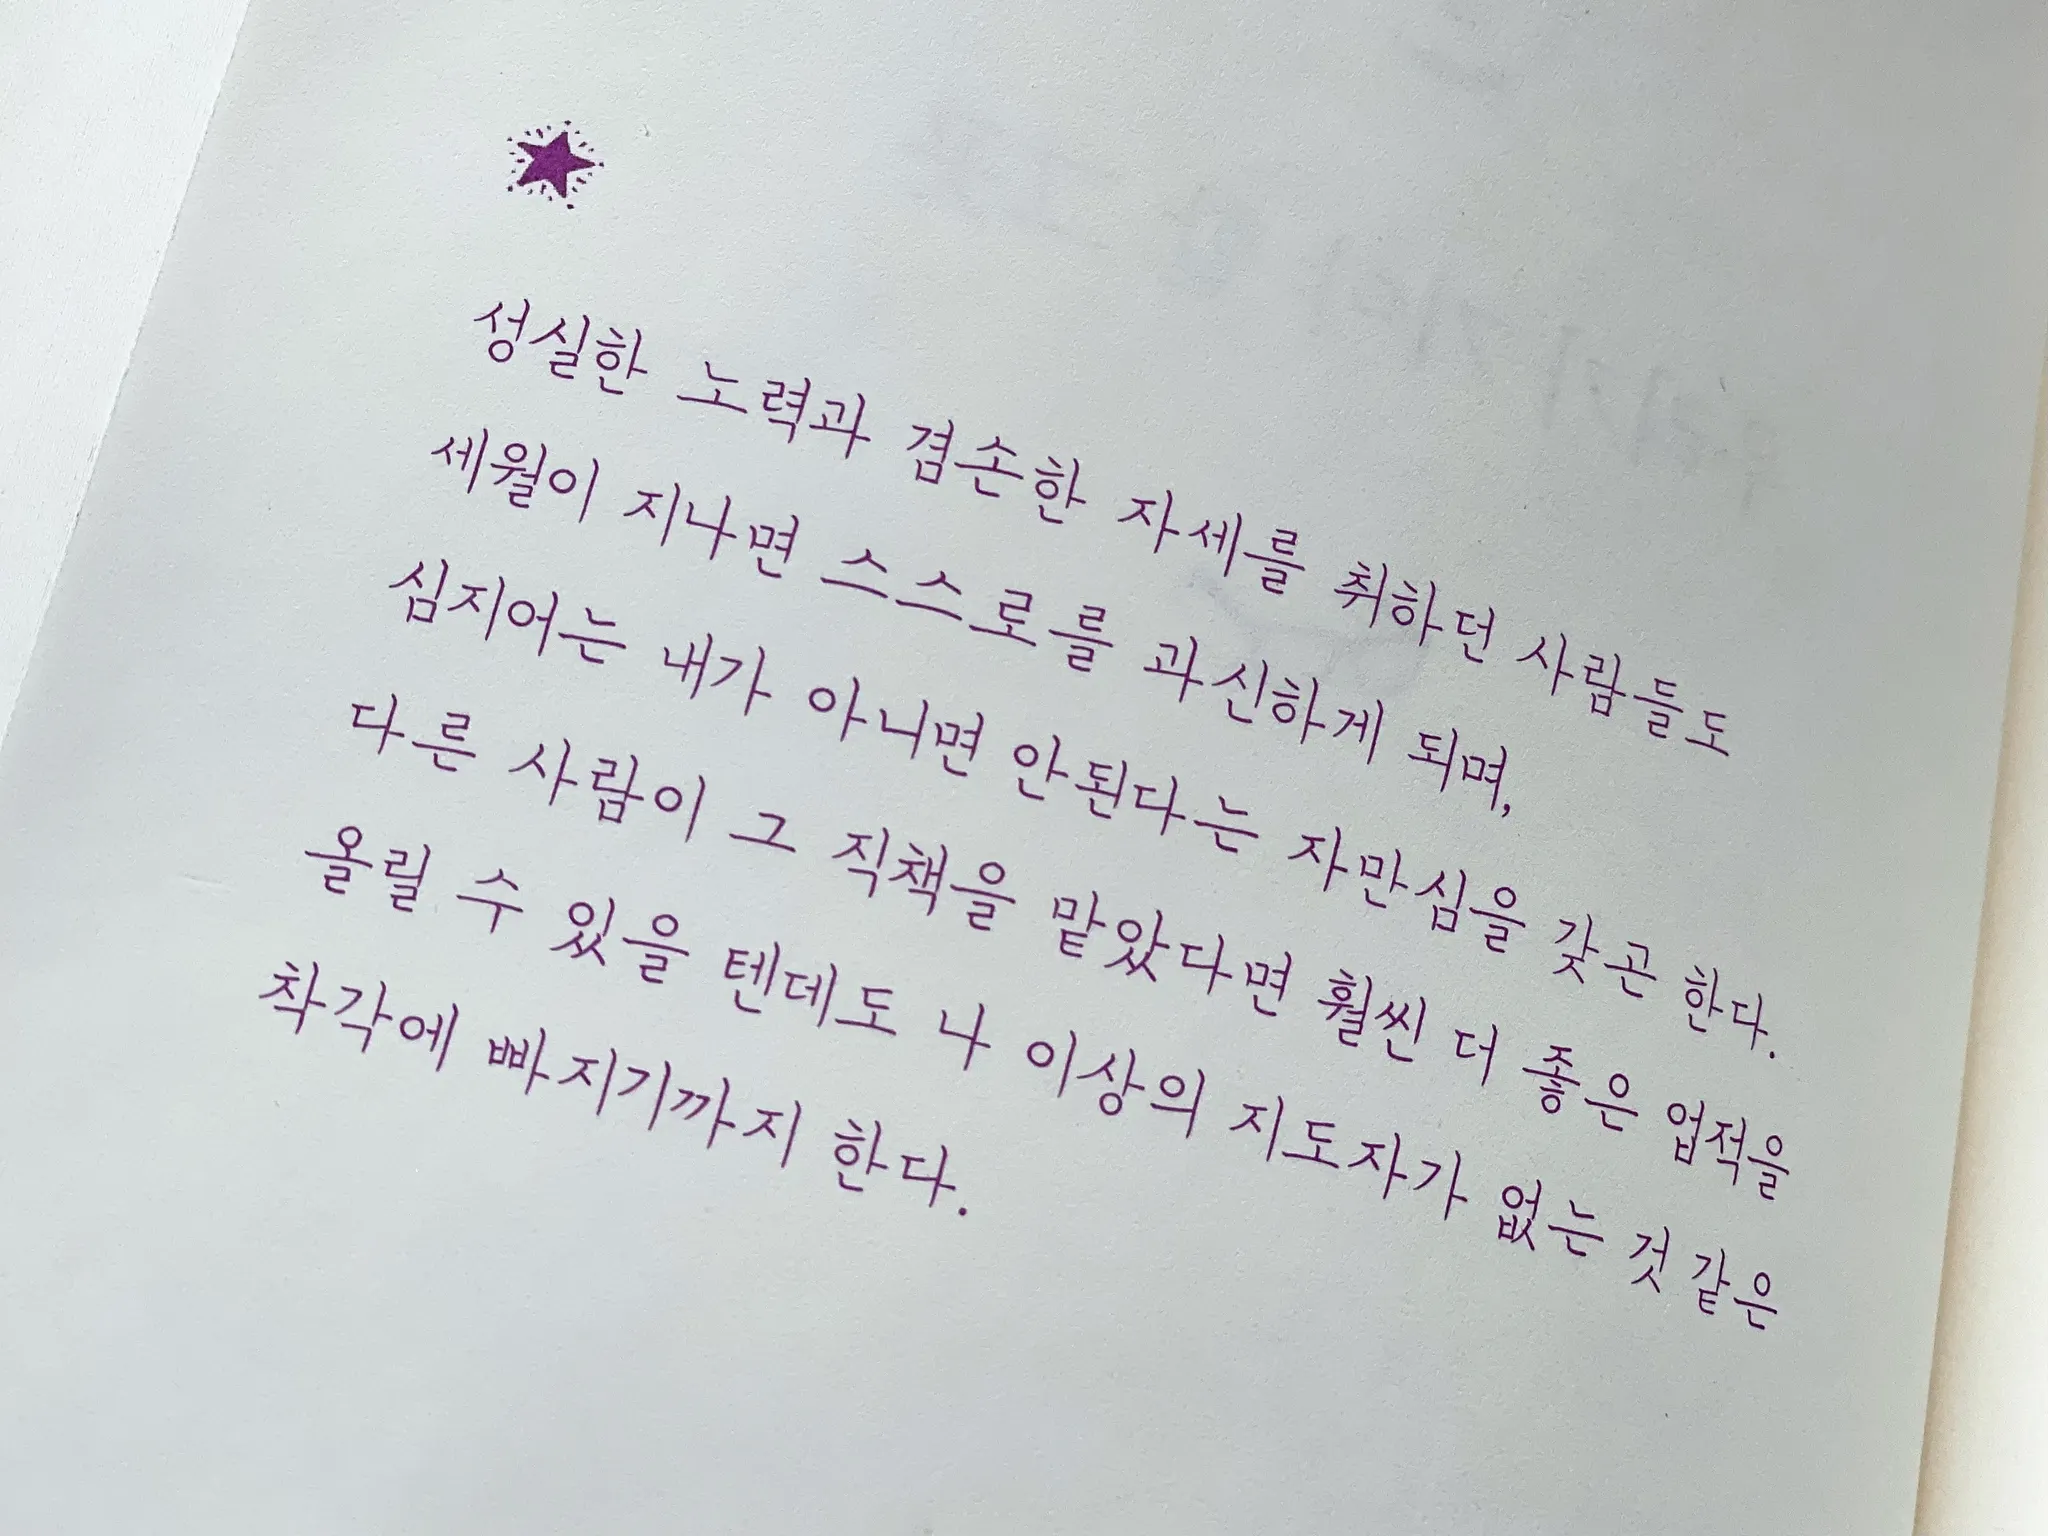 성실한 노력과 겸손한 자세를 취하던 사람들도
세월이 지나면 스스로를 과신하게 되며,
심지어는 내가 아니면 안된다는 자만심을 갖곤 한다.
다른 사람이 그 직책을 맡았다면 훨씬 더 좋은 업적을
올릴 수 있을 텐데도 나 이상의 지도자가 없는 것 같은
착각에 빠지기까지 한다.